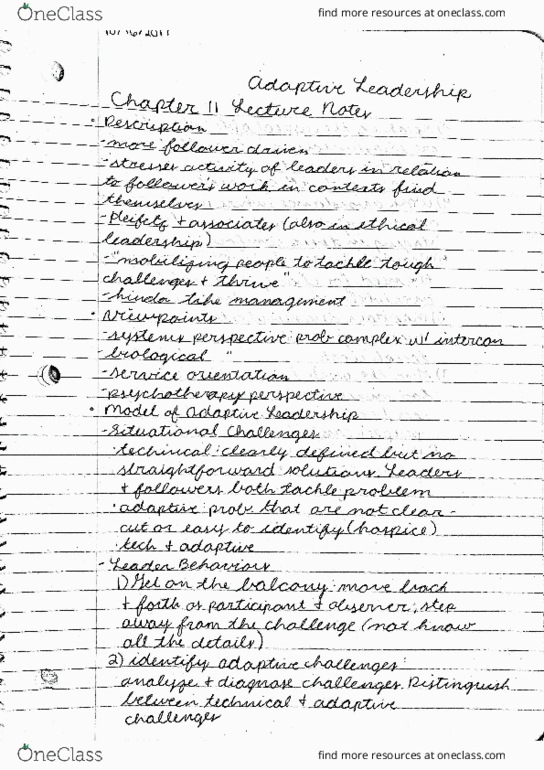 OneClass
find more resources at oneclass.com
Adaptive Leadership
Chapter 11 Lecture Notes
• Description
- more follower driven
- stresses activity of leaders in relation
to followers work in contexts find
themselves
- Heifetz + associates (also in ethical
leadership)
- "mobilizing people to tackle tough
challenges + thrive"
- kinda like management
• Viewpoints
- systems perspective: prob complex w/ intercon
- biological "
- service orientation
- psychotherapy perspective
• Model of Adaptive Leadership
- Situational Challenges
· technical: clearly defined but no
straightforward solutions. Leaders
+ followers both tackle problem
· adaptive: prob that are not clear-
cut or easy to identify (hospice)
· tech + adaptive
- Leader Behaviors
1) Get on the balcony: move back
+ forth as participant + observer; step
away from the challenge (not know
all the details)
2) identify adaptive challenges:
analyze + diagnose challenges. Distinguish
between technical + adaptive
challenges
OneClass
find more resources at oneclass.com